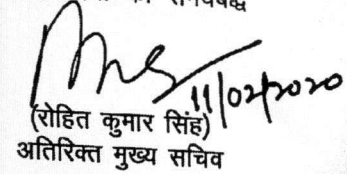 समयबद्ध
11/02/2020
(रोहित कुमार सिंह)
अतिरिक्त मुख्य सचिव